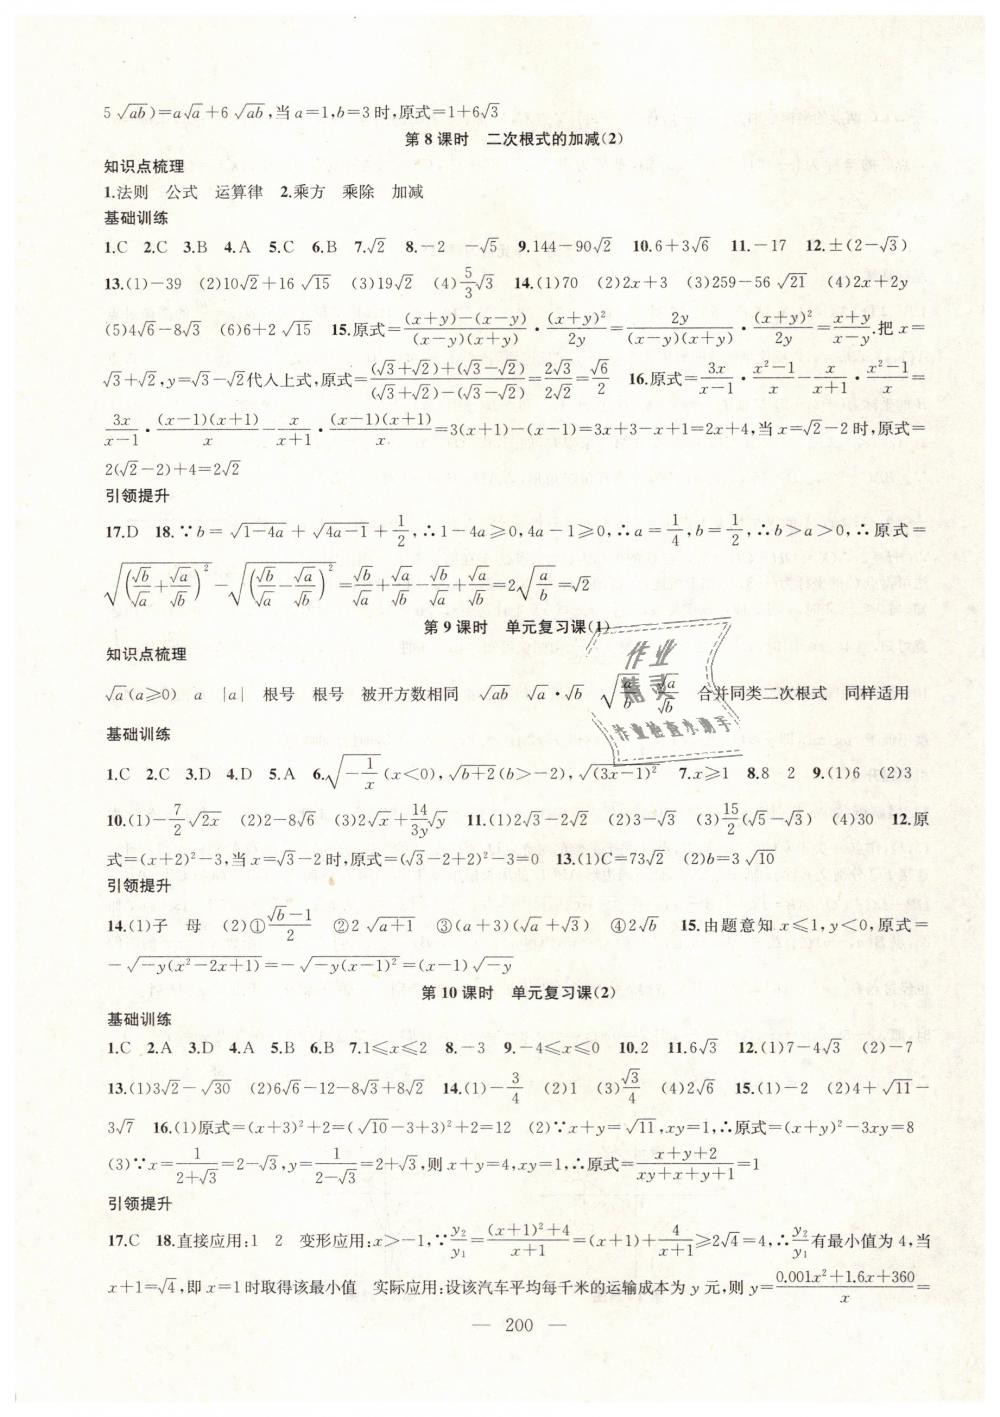 5√(ab))=a√a+6√(ab),当a=1,b=3时,原式=1+6√3
第8课时 二次根式的加减(2)
知识点梳理
1.法则 公式 运算律 2.乘方 乘除 加减
基础训练
1.C 2.C 3.B 4.A 5.C 6.B 7.√2 8.-2 -√5 9.144-90√2 10.6+3√6 11.-17 12.±(2-√3)
13.(1)-39 (2)10√2+16√15 (3)19√2 (4)5/3√3 14.(1)70 (2)2x+3 (3)259-56√21 (4)2x+2y
(5)4√6-8√3 (6)6+2√15 15.原式=((x+y)-(x-y))/((x-y)(x+y))·(x+y)²/2y=2y/((x-y)(x+y))·(x+y)²/2y=(x+y)/(x-y).把x=
√3+√2,y=√3-√2代入上式,原式=((√3+√2)+(√3-√2))/((√3+√2)-(√3-√2))=2√3/2√2=√6/2 16.原式=3x/(x-1)·(x²-1)/x-x/(x+1)·(x²-1)/x=
3x/(x-1)·(x-1)(x+1)/x-x/(x+1)·(x-1)(x+1)/x=3(x+1)-(x-1)=3x+3-x+1=2x+4,当x=√2-2时,原式=
2(√2-2)+4=2√2
引领提升
17.D 18.∵b=√(1-4a)+√(4a-1)+1/2,∴1-4a≥0,4a-1≥0,∴a=1/4,b=1/2,∴b>a>0,∴原式=
√((√b/√a+√a/√b)²)-√((√b/√a-√a/√b)²)=√b/√a+√a/√b-√b/√a+√a/√b=2√(a/b)=√2
第9课时 单元复习课(1)
知识点梳理
√a(a≥0) a |a| 根号 根号 被开方数相同 √(ab) √a·√b √(a/b) √a/√b 合并同类二次根式 同样适用
作业
精灵
作业检查小助手
基础训练
1.C 2.C 3.D 4.D 5.A 6.√(-1/x)(x<0),√(b+2)(b>-2),√((3x-1)²) 7.x≥1 8.8 2 9.(1)6 (2)3
10.(1)-7/2√(2x) (2)2-8√6 (3)2√x+14/3y√y 11.(1)2√3-2√2 (2)3-√3 (3)15/2(√5-√3) (4)30 12.原
式=(x+2)²-3,当x=√3-2时,原式=(√3-2+2)²-3=0 13.(1)C=73√2 (2)b=3√10
引领提升
14.(1)子 母 (2)①(√b-1)/2 ②2√(a+1) ③(a+3)(√a+√3) ④2√b 15.由题意知x≤1,y<0,原式=
-√(-y(x²-2x+1))=-√(-y(x-1)²)=(x-1)√(-y)
第10课时 单元复习课(2)
基础训练
1.C 2.A 3.D 4.A 5.B 6.B 7.1≤x≤2 8.-3 9.-4≤x≤0 10.2 11.6√3 12.(1)7-4√3 (2)-7
13.(1)3√2-√30 (2)6√6-12-8√3+8√2 14.(1)-3/4 (2)1 (3)√3/4 (4)2√6 15.(1)-2 (2)4+√11-
3√7 16.(1)原式=(x+3)²+2=(√10-3+3)²+2=12 (2)∵x+y=√11,xy=1,∴原式=(x+y)²-3xy=8
(3)∵x=1/(2+√3)=2-√3,y=1/(2-√3)=2+√3,则x+y=4,xy=1,∴原式=(x+y+2)/(xy+x+y+1)=1
引领提升
17.C 18.直接应用:1 2 变形应用:x>-1,∵y₂/y₁=((x+1)²+4)/(x+1)=(x+1)+4/(x+1)≥2√4=4,∴y₂/y₁有最小值为4,当
x+1=√4,即x=1时取得该最小值 实际应用:设该汽车平均每千米的运输成本为y元,则y=(0.001x²+1.6x+360)/x=
— 200 —